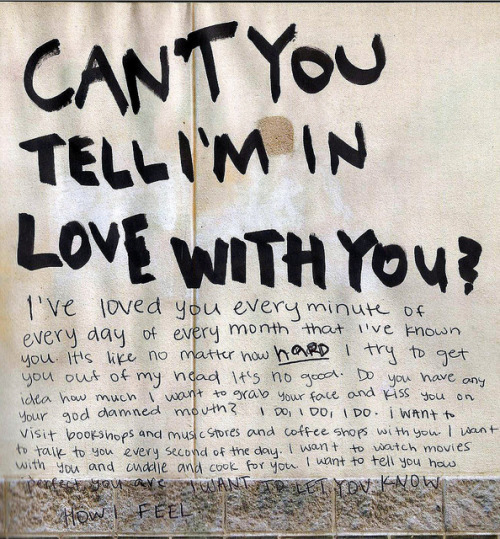 CAN'T YOU
TELL I'M IN
LOVE WITH YOU?
I've loved you every minute of
every day of every month that i've known
you. It's like no matter how hARD I try to get
you out of my head It's no good. Do you have any
idea how much I want to grab your face and kiss you on
your god damned mouth? I DO, I DO, I DO. I WANt to
visit bookshops and music stores and coffee shops with you. I want
to talk to you every second of the day. I want to watch movies
with you and cuddle and cook for you I want to tell you how
perfect you are I WANT TO LET YOU KNOW
HOW I FEEL